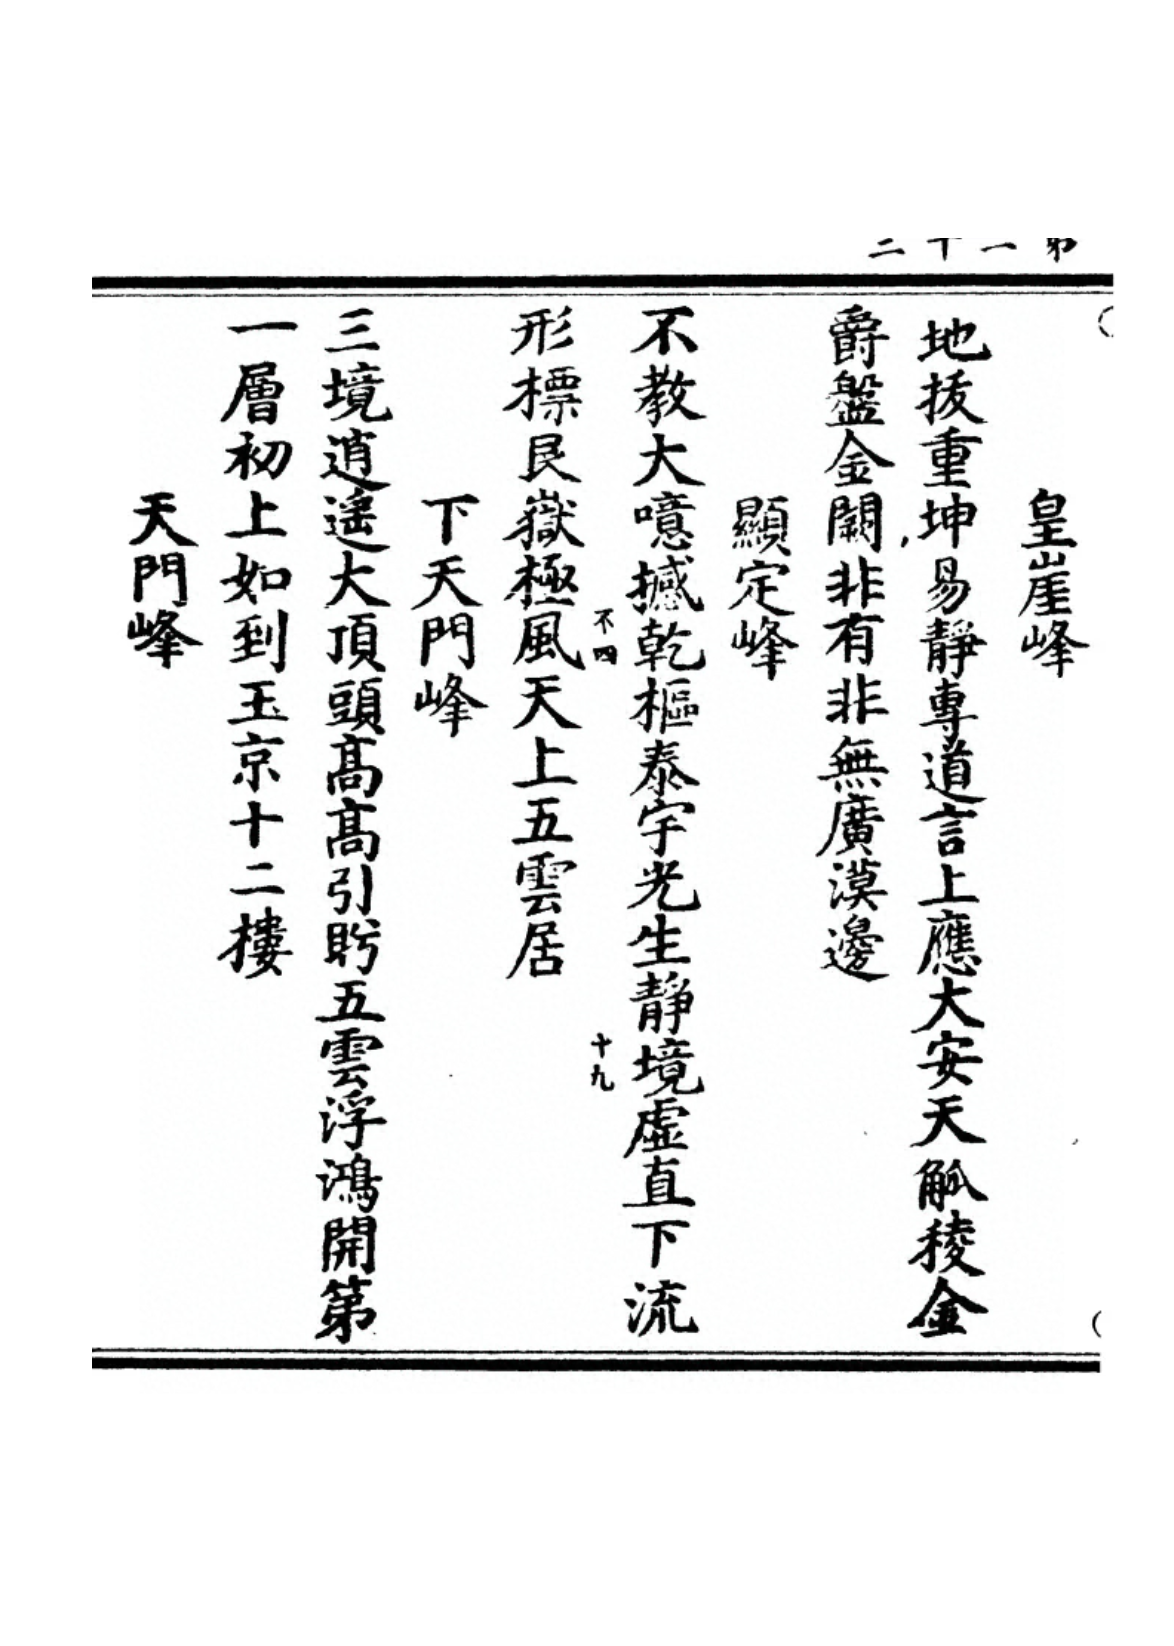 第一十二
皇崖峰
地拔重坤易靜專道言上應大安天觚稜金
爵盤金闕非有非無廣漠邊
顯定峰
不教大噫撼乾樞泰宇光生靜境虛直下流
不四
十九
形標艮嶽極風天上五雲居
下天門峰
三境逍遙大頂頭髙髙引盻五雲浮鴻開第
一層初上如到玉京十二樓
天門峰